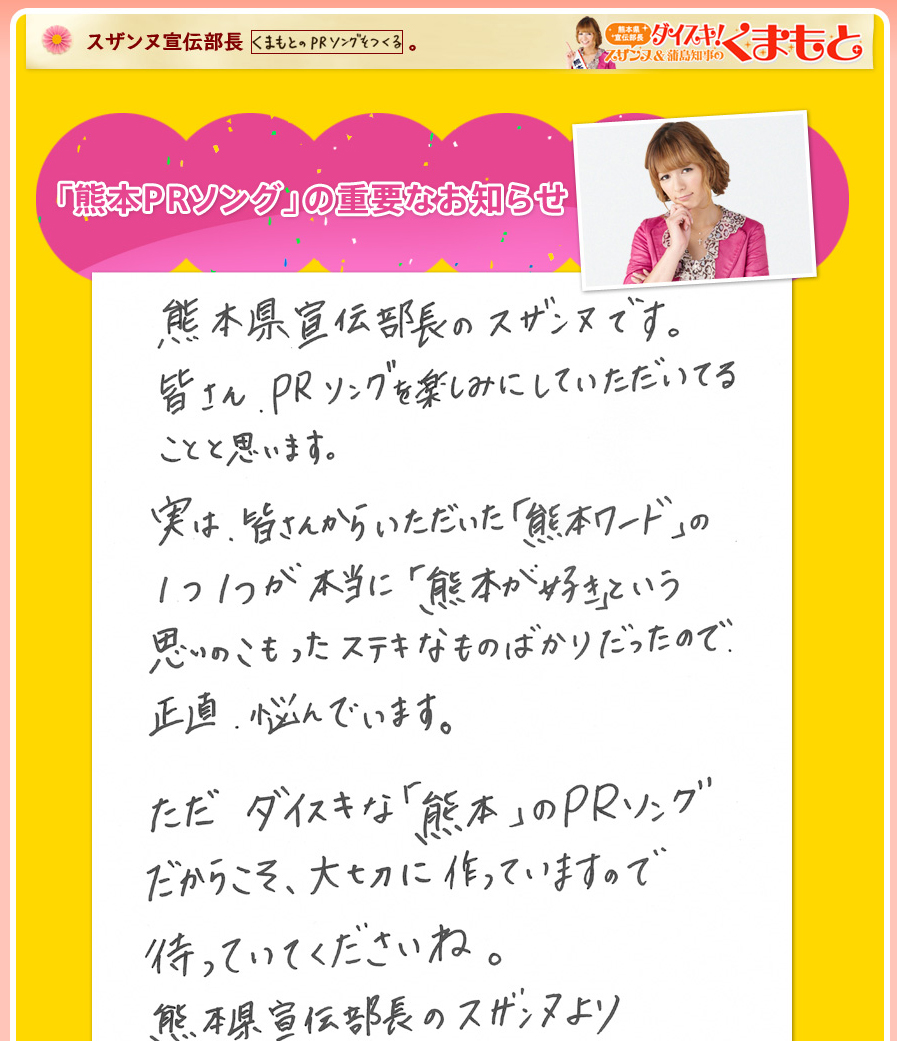 スザンヌ宣伝部長 くまもとのPRソングをつくる 。
熊本県
宣伝部長
ダイスキ!
くまもと
スザンヌ&蒲島知事の
「熊本PRソング」の重要なお知らせ
熊本県宣伝部長のスザンヌです。
皆さん、PRソングを楽しみにしていただいてる
ことと思います。
実は、皆さんからいただいた「熊本ワード」の
1つ1つが本当に「熊本が好き」という
思いのこもったステキなものばかりだったので、
正直、悩んでいます。
ただ ダイスキな「熊本」のPRソング
だからこそ、大切に作っていますので
待っていてくださいね。
熊本県宣伝部長のスザンヌより